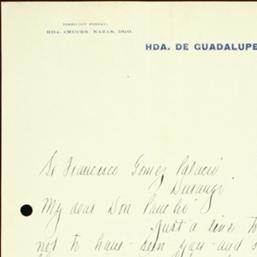 DIRECCION POSTAL:
HDA. CRUCES, NAZAS, DGO.
HDA. DE GUADALUPE
Sr Francisco Gomez Palacio
Durango
My dear Don Pancho
Just a line to
not to have seen you and